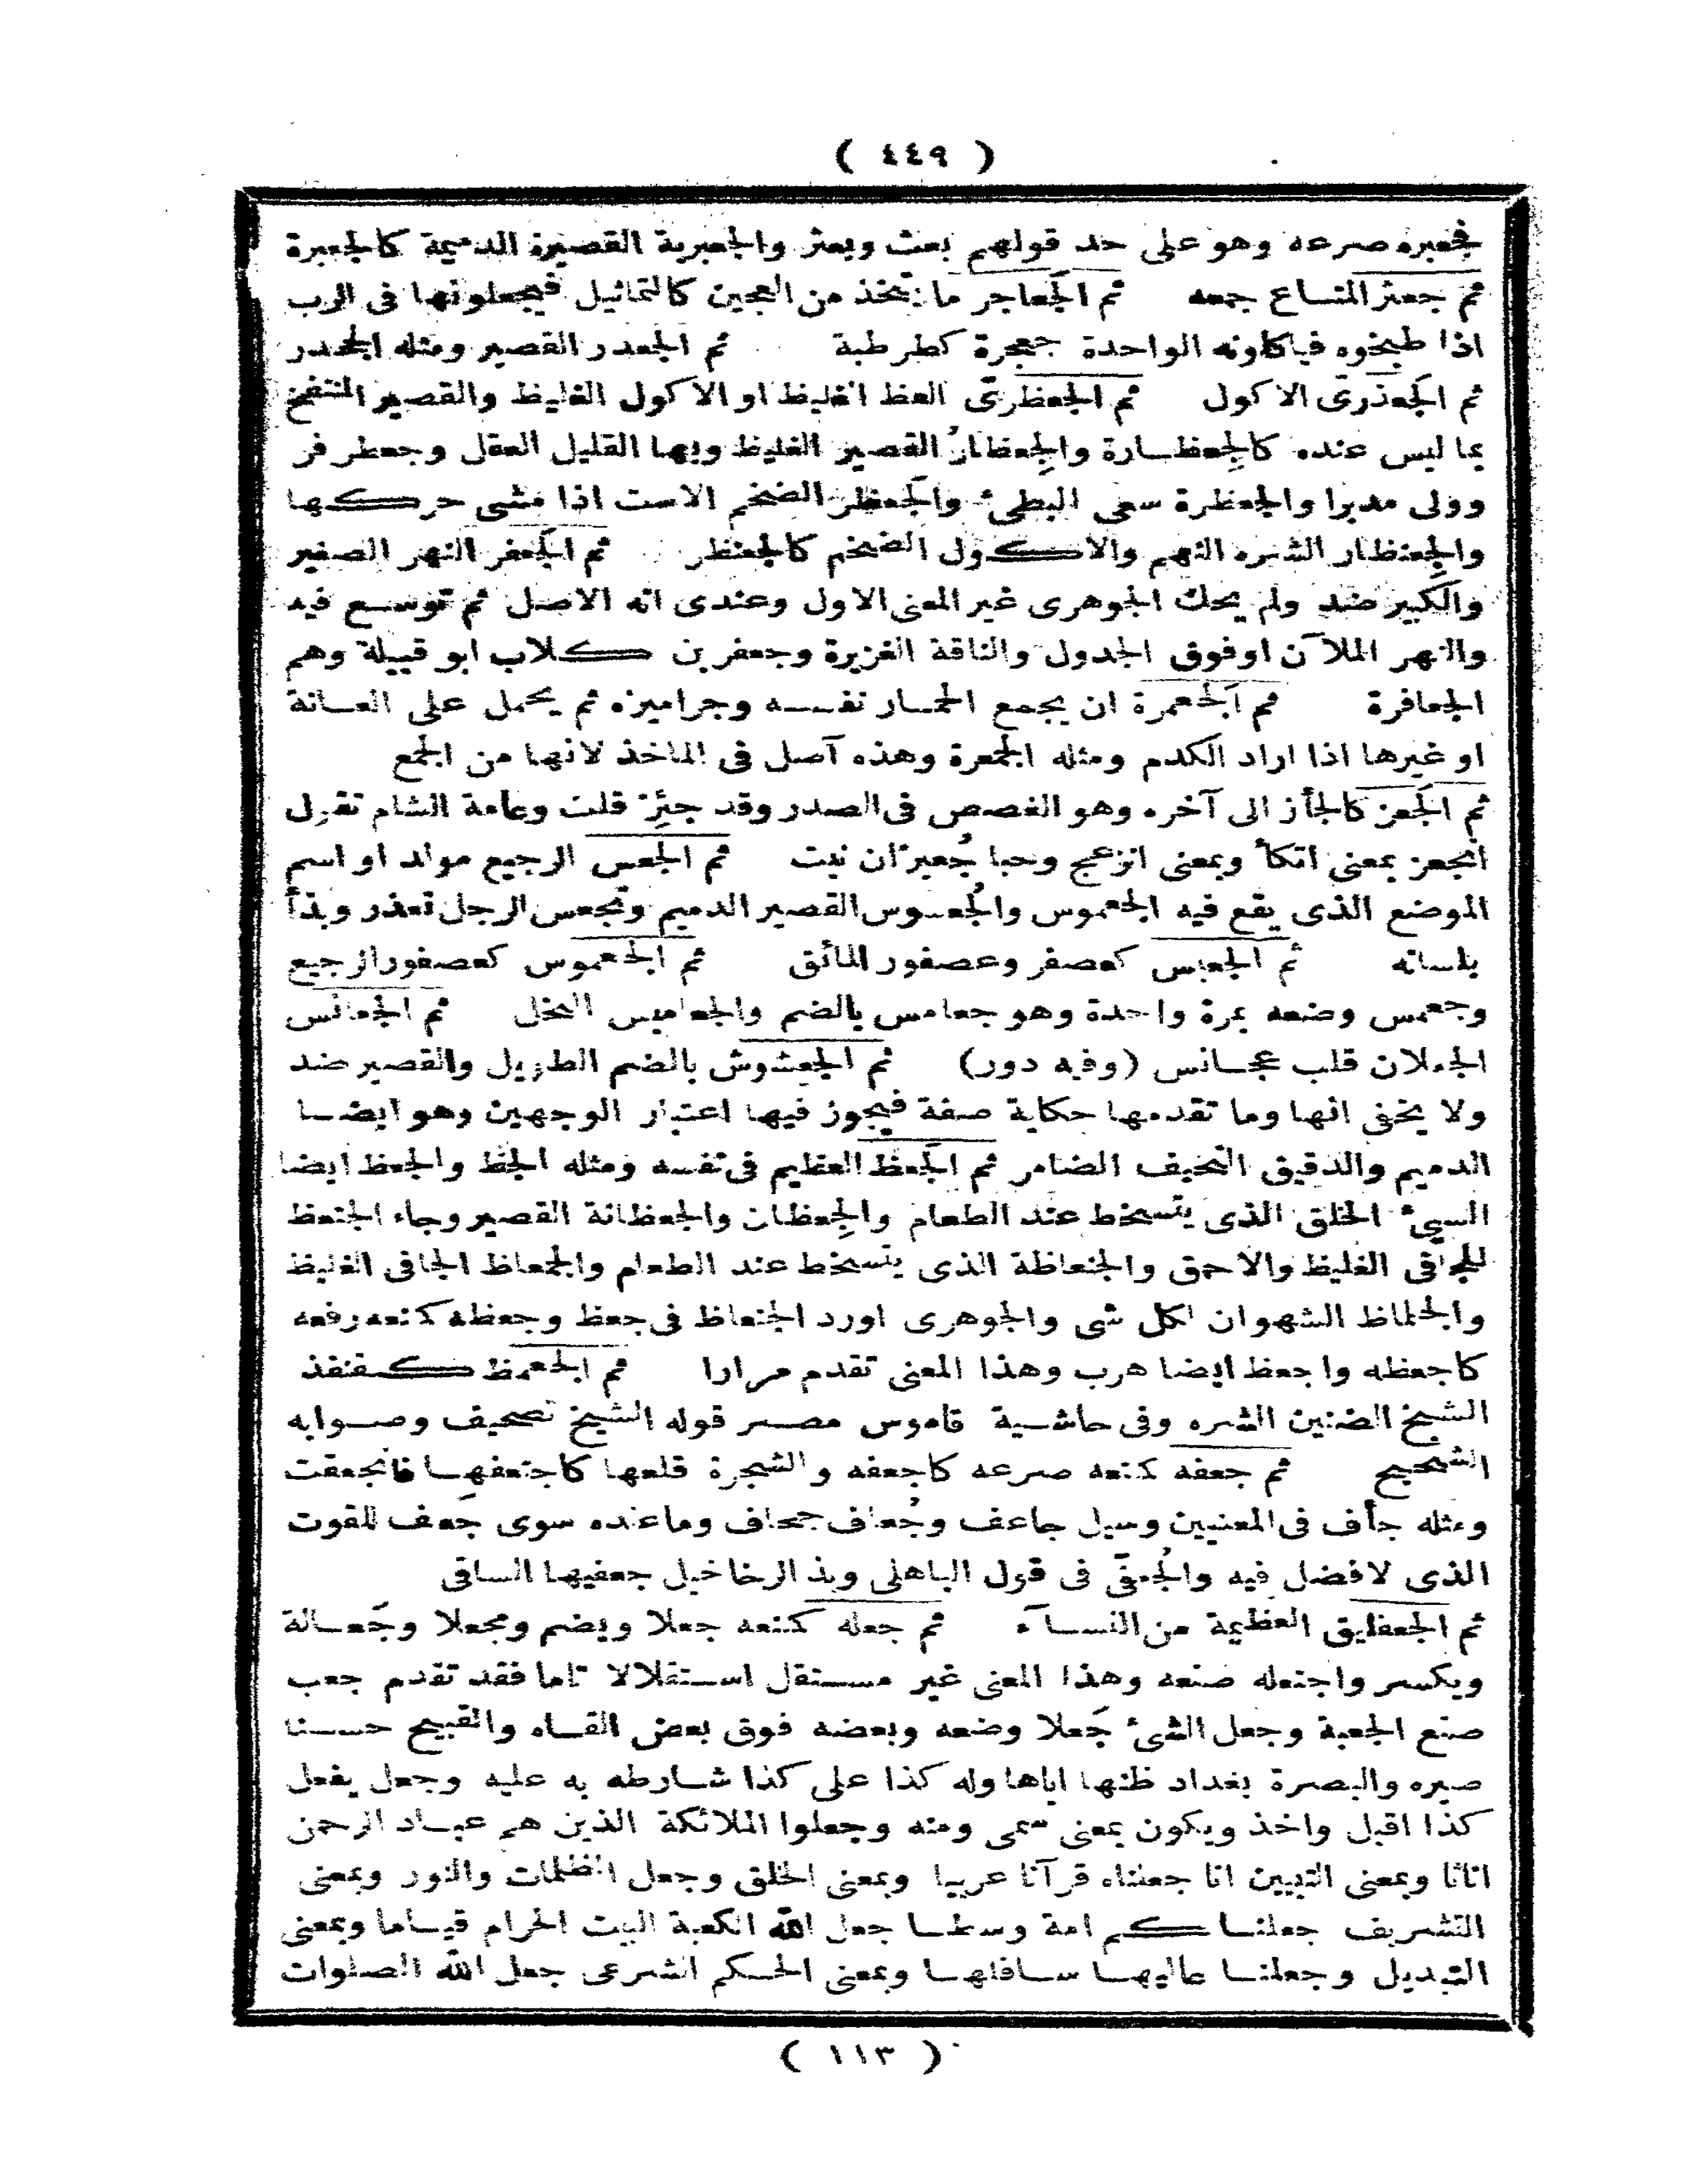 ( ٤٤٩ )
فجعبره صرعه وهو على حد قولهم بعث وبعثر والجعبرية القصيرة الدميمة كالجعبرة
ثم جعثر المتـاع جمعه ثم الجَعاجر ما يتخذ من العجين كالتماثيل فيجعلونها فى الرب
اذا طبخوه فياكلونه الواحدة جعجرة كطرطبة ثم الجعدر القصير ومثله الجحدر
ثم الجَعذرىّ الاكول ثم الجعظرىّ الفظ الغليظ او الاكول الغليظ والقصير المنتفخ
بما ليس عنده كالجِعظـارة والجِعظارُ القصير الغليظ وبها القليل العقل وجعظر فر
وولى مدبرا والجعظرة سعى البطىء والجَعظر الضخم الاست اذا مشى حركـها
والجِعنظار الشره النهم والاكـول الضخم كالجعنظر ثم الجَعفر النهر الصغير
والكبير ضد ولم يحك الجوهرى غير المعنى الاول وعندى انه الاصل ثم توسـع فيه
والنهر الملآن او فوق الجدول والناقة الغزيرة وجعفر بن كـلاب ابو قبيلة وهم
الجعافرة ثم الجَعمرة ان يجمع الحمـار نفسـه وجراميزه ثم يحمل على العـانة
او غيرها اذا اراد الكدم ومثله الجمعرة وهذه آصل فى الماخذ لانها من الجمع
ثم الجَعز كالجأز الى آخره وهو الغصص فى الصدر وقد جئِز قلت وعامة الشام تقول
انجعز بمعنى اتكأ وبمعنى انزعج وحبا جُعيرّان نبت ثم الجعس الرجيع مولد او اسم
الموضع الذى يقع فيه الجعموس والجُعسوس القصير الدميم وتجعس الرجل تعذر وبذأ
بلسانه ثم الجعبس كعصفر وعصفور المائق ثم الجعموس كعصفور الرجيع
وجعمس وضعه بمرة واحدة وهو جعامس بالضم والجعاميس النخل ثم الجعانس
الجعلان قلب عجـانس (وفيه دور) ثم الجعشوش بالضم الطويل والقصير ضد
ولا يخفى انها وما تقدمها حكاية صفة فيجوز فيها اعتبار الوجهين وهو ايضـا
الدميم والدقيق النحيف الضامر ثم الجَعظ العظيم فى نفسه ومثله الجظ والجعظ ايضا
السيىء الخلق الذى يتسخط عند الطعام والجِعظان والجعظانة القصير وجاء الجنعظ
للجافى الغليظ والاحمق والجنعاظة الذى يتسخط عند الطعام والجمعاظ الجافى الغليظ
والجلماظ الشهوان لكل شى والجوهرى اورد الجنعاظ فى جعظ وجعظه كنعه رفعه
كاجعظه واجعظ ايضا هرب وهذا المعنى تقدم مرارا ثم الجعمظ كـقنفذ
الشيخ الضنين الشره وفى حاشـية قاموس مصـر قوله الشيخ تصحيف وصـوابه
الشحيح ثم جعفه كنعه صرعه كاجعفه والشجرة قلعها كاجتعفهـا فانجعفت
ومثله جأف فى المعنيين وسيل جاعف وجُعاف جحاف وماعنده سوى جَعف للقوت
الذى لا فضل فيه والجُعفىّ فى قول الباهلى وبذ الرخاخيل جعفيها الساقى
ثم الجعفليق العظيمة من النسـآء ثم جعله كنعه جعلا ويضم ومجعلا وجَعـالة
ويكسر واجتعله صنعه وهذا المعنى غير مسـتقل اسـتقلالا تاما فقد تقدم جعب
صنع الجعبة وجعل الشىء جَعلا وضعه وبعضه فوق بعض القـاه والقبيح حسـنا
صيره والبصرة بغداد ظنها اياها وله كذا على كذا شـارطه به عليه وجعل يفعل
كذا اقبل واخذ ويكون بمعنى سمى ومنه وجعلوا الملائكة الذين هم عبـاد الرحمن
اناثا وبمعنى التبيين انا جعلناه قرآنا عربيا وبمعنى الخلق وجعل الظلمات والنور وبمعنى
التشريف جعلنـاكـم امة وسطـا جعل الله الكعبة البيت الحرام قيـاما وبمعنى
التبديل وجعلنـا عاليهـا سـافلهـا وبمعنى الحـكم الشرعى جعل الله الصلوات
( ١١٣ )